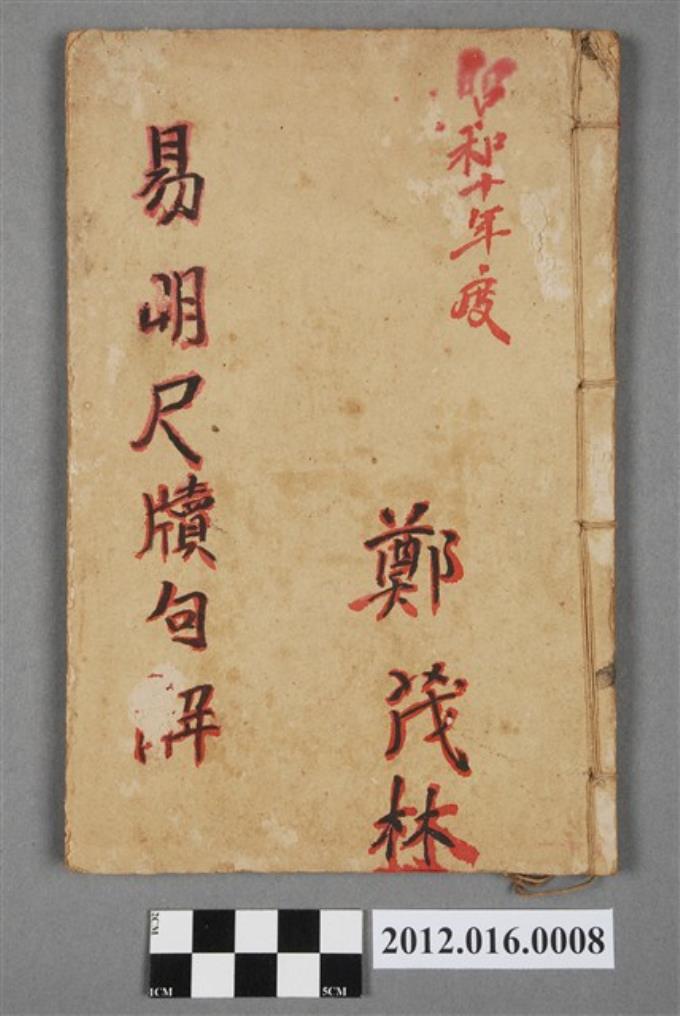 昭和十年度
鄭茂林
易明尺牘句解
2CM
1CM
5CM
2012.016.0008